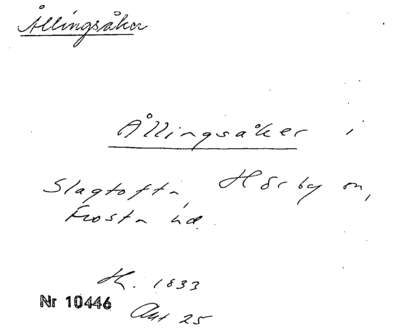 Ållingsåker
Ållingsåker i
Slagtofta, Hörby sn,
Frosta hd.
H. 1833
Nr 10446
Akt 25